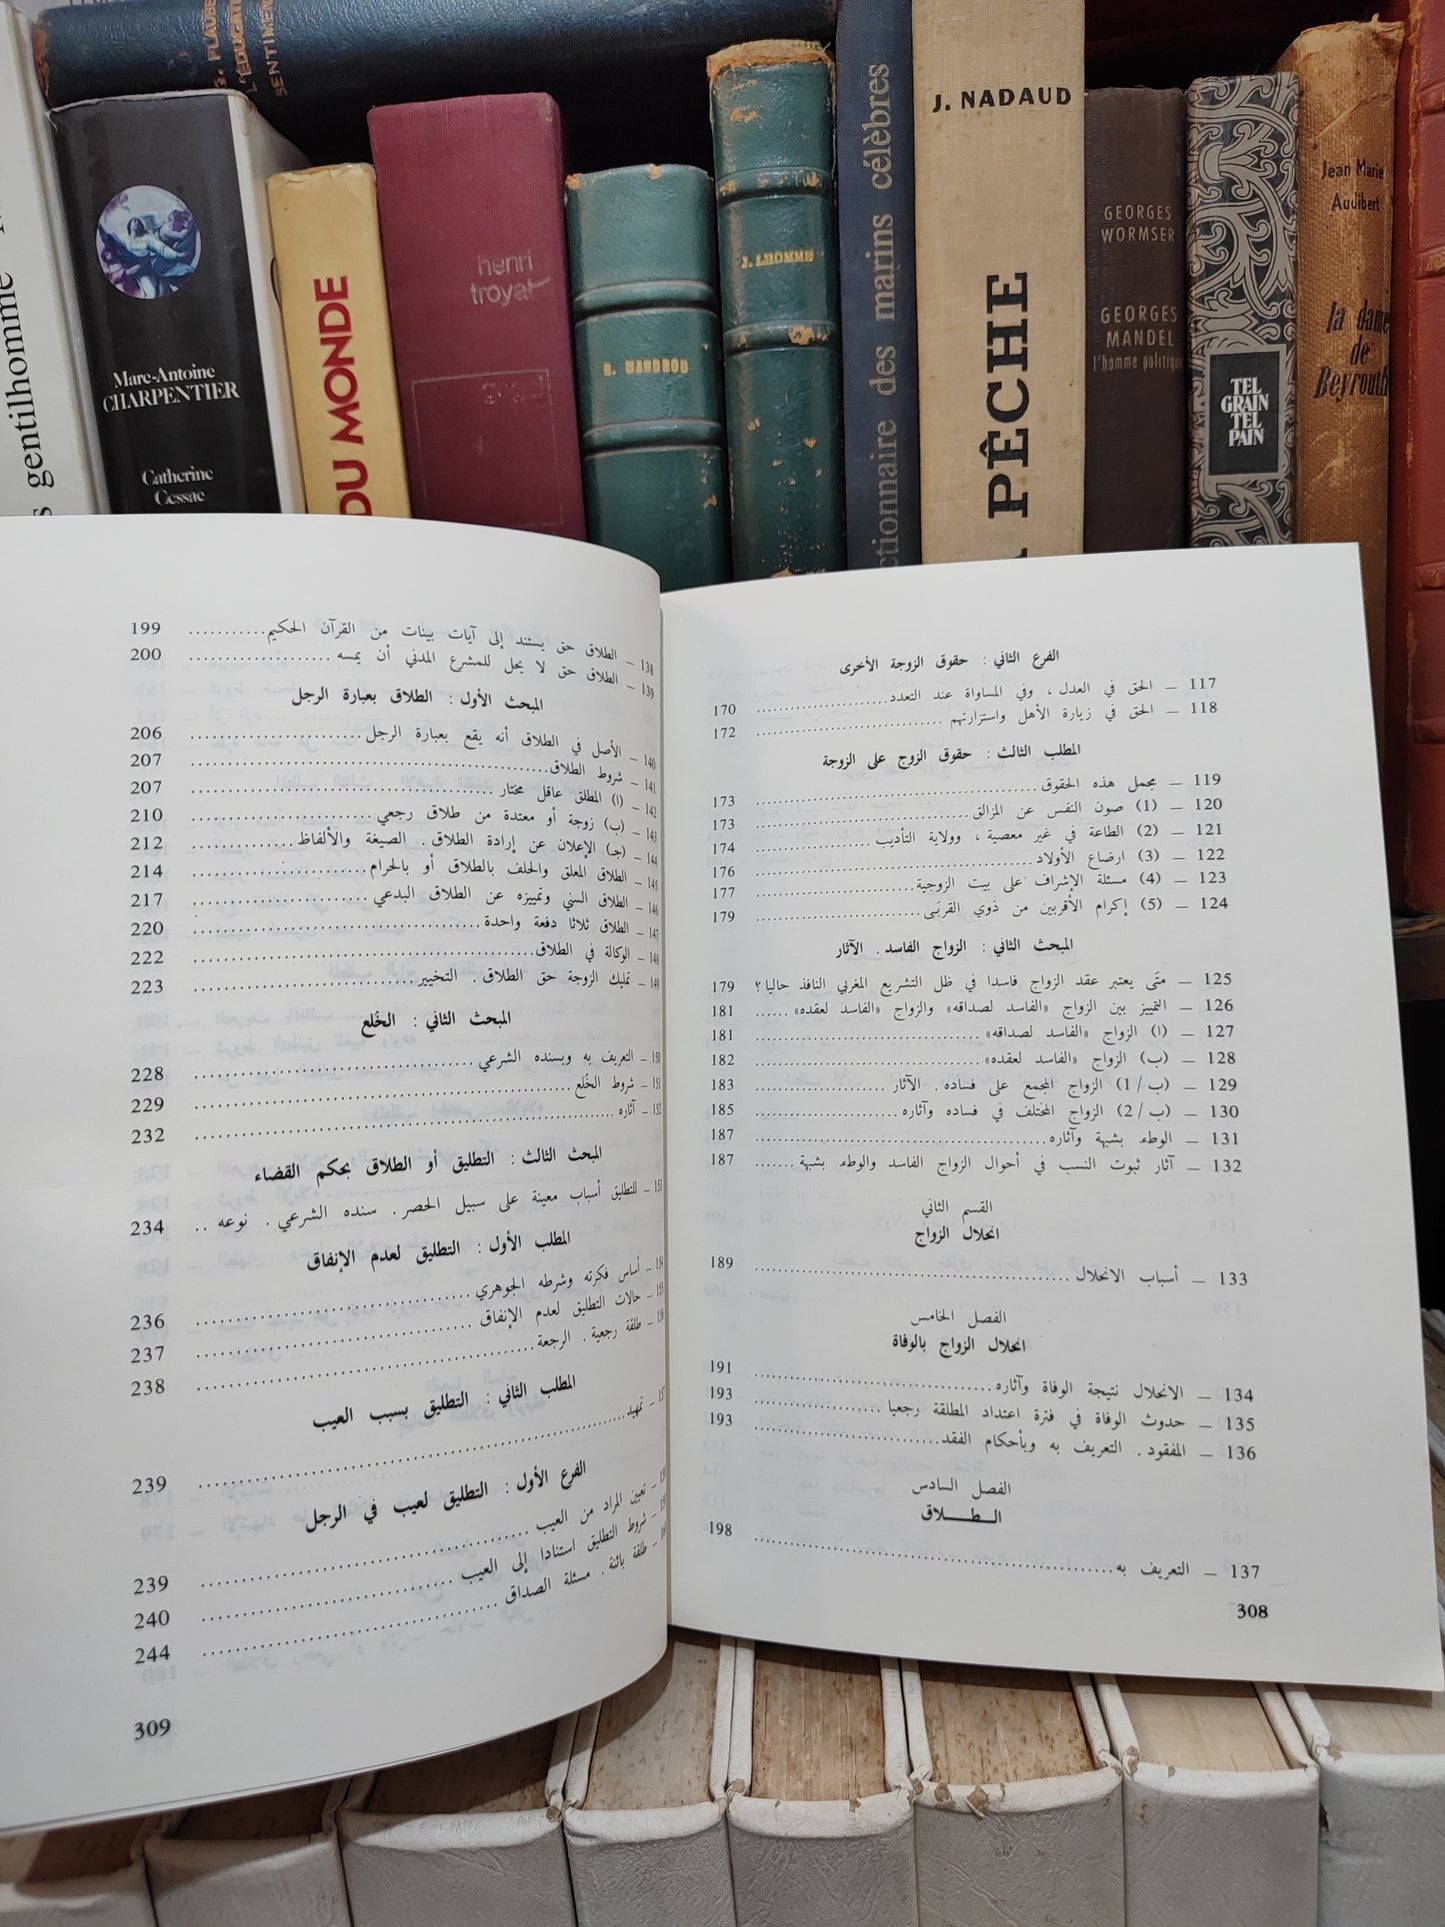 G. FLAUBE
L'ÉDUCAT
SENTIMEN
gentilhomme
Marc-Antoine
CHARPENTIER
Catherine
Cessac
DU MONDE
henri
troyat
R. MANDROU
J. LHOMME
ctionnaire des marins célèbres
J. NADAUD
PÊCHE
GEORGES
WORMSER
GEORGES
MANDEL
l'homme politique
TEL
GRAIN
TEL
PAIN
Jean Marie
Audibert
la dame
de
Beyrouth
الفرع الثاني : حقوق الزوجة الأخرى
117 — الحق في العدل ، وفي المساواة عند التعدد...................... 170
118 — الحق في زيارة الأهل واستزارتهم ...................... 172
المطلب الثالث : حقوق الزوج على الزوجة
119 — مجمل هذه الحقوق...................... 173
120 — (1) صون النفس عن المزالق...................... 173
121 — (2) الطاعة في غير معصية ، وولاية التأديب ...................... 174
122 — (3) ارضاع الأولاد...................... 176
123 — (4) مسئلة الإشراف على بيت الزوجية...................... 177
124 — (5) إكرام الأقربين من ذوي القربَى...................... 179
المبحث الثاني : الزواج الفاسد . الآثار
125 — متَى يعتبر عقد الزواج فاسدا في ظل التشريع المغربي النافذ حاليا ؟ 179
126 — التمييز بين الزواج «الفاسد لصداقه» والزواج «الفاسد لعقده» ...... 181
127 — (ا) الزواج «الفاسد لصداقه» ...................... 181
128 — (ب) الزواج «الفاسد لعقده» ...................... 182
129 — (ب / 1) الزواج المجمع على فساده . الآثار ...................... 183
130 — (ب / 2) الزواج المختلف في فساده وآثاره...................... 185
131 — الوطء بشبهة وآثاره...................... 187
132 — آثار ثبوت النسب في أحوال الزواج الفاسد والوطء بشبهة ....... 187
القسم الثاني
انحلال الزواج
133 — أسباب الانحلال ...................... 189
الفصل الخامس
انحلال الزواج بالوفاة
134 — الانحلال نتيجة الوفاة وآثاره...................... 191
135 — حدوث الوفاة في فترة اعتداد المطلقة رجعيا ...................... 193
136 — المفقود . التعريف به وبأحكام الفقد...................... 193
الفصل السادس
الـطـــلاق
137 — التعريف به...................... 198
308
138 — الطلاق حق يستند إلى آيات بينات من القرآن الحكيم........... 199
139 — الطلاق حق لا يحل للمشرع المدني أن يمسه ...................... 200
المبحث الأول : الطلاق بعبارة الرجل
140 — الأصل في الطلاق أنه يقع بعبارة الرجل...................... 206
141 — شروط الطلاق...................... 207
142 — (ا) المطلق عاقل مختار ...................... 207
143 — (ب) زوجة أو معتدة من طلاق رجعي ...................... 210
144 — (جـ) الإعلان عن إرادة الطلاق . الصيغة والألفاظ .............. 212
145 — الطلاق المعلق والحلف بالطلاق أو بالحرام...................... 214
146 — الطلاق السني وتمييزه عن الطلاق البدعي ...................... 217
147 — الطلاق ثلاثا دفعة واحدة...................... 220
148 — الوكالة في الطلاق...................... 222
149 — تمليك الزوجة حق الطلاق . التخيير ...................... 223
المبحث الثاني : الخلع
150 — التعريف به وبسنده الشرعي ...................... 228
151 — شروط الخُلع ...................... 229
152 — آثاره ...................... 232
المبحث الثالث : التطليق أو الطلاق بحكم القضاء
153 — للتطليق أسباب معينة على سبيل الحصر . سنده الشرعي . نوعه .. 234
المطلب الأول : التطليق لعدم الإنفاق
154 — أساس فكرته وشرطه الجوهري ...................... 236
155 — حالات التطليق لعدم الإنفاق ...................... 237
156 — طلقة رجعية . الرجعة...................... 238
المطلب الثاني : التطليق بسبب العيب
157 — تمهيد...................... 239
الفرع الأول : التطليق لعيب في الرجل
15 — تعيين المراد من العيب ...................... 239
15 — شروط التطليق استنادا إلى العيب ...................... 240
16 — طلقة بائنة . مسئلة الصداق ...................... 244
309